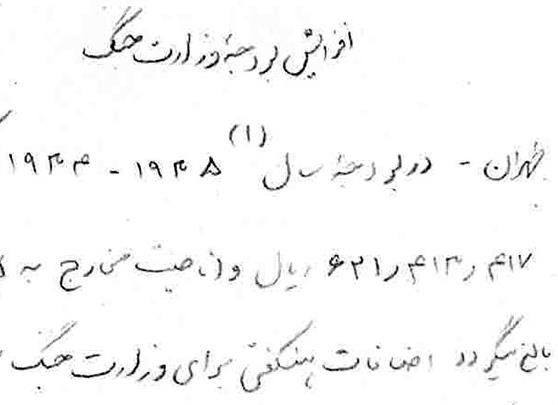 افزایش بودجهٔ وزارت جنگ
طهران - در بودجهٔ سال (۱) ۱۹۴۵ - ۱۹۴۴
ریال و از حیث مخارج به
بالغ میگردد اضافات هنگفتی برای وزارت جنگ